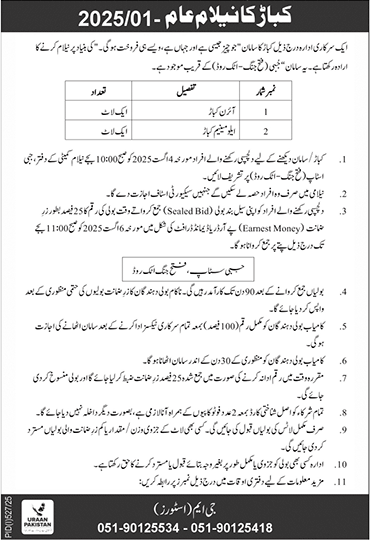 کباڑ کا نیلام عام - 2025/01
ایک سرکاری ادارہ درج ذیل کباڑ کا سامان "جو چیز جیسی ہے اور جہاں ہے، ویسے ہی فروخت ہوگی۔" کی بنیاد پر نیلام کرنے کا
ارادہ رکھتا ہے۔ یہ سامان "جبی (فتح جنگ-اٹک روڈ) کے قریب موجود ہے۔
نمبر شمار تفصیل تعداد
1 آئرن کباڑ ایک لاٹ
2 ایلومینیم کباڑ ایک لاٹ
1. کباڑ/ سامان دیکھنے کے لیے دلچسپی رکھنے والے افراد مورخہ 4 اگست 2025 کو صبح 10:00 بجے نیلام کمیٹی کے دفتر، جبی
اسٹاپ (فتح جنگ - اٹک روڈ) پر تشریف لائیں۔
2. نیلامی میں صرف وہ افراد حصہ لے سکیں گے جنہیں سیکیورٹی اسٹاف اجازت دے گا۔
3. دلچسپی رکھنے والے افراد کو اپنی سیل بند بولی (Sealed Bid) جمع کرواتے وقت بولی کی رقم کا 25 فیصد بطور زر
ضمانت (Earnest Money) پے آرڈر یا ڈیمانڈ ڈرافٹ کی شکل میں مورخہ 6 اگست 2025 کو صبح 11:00 بجے
تک درج ذیل پتے پر جمع کروانا ہوگا۔
جبی سٹاپ، فتح جنگ اٹک روڈ
4. بولیاں جمع کروانے کے بعد 90 دن تک کارآمد رہیں گی۔ ناکام بولی دہندگان کا زر ضمانت بولیوں کی حتمی منظوری کے بعد
واپس کر دیا جائے گا۔
5. کامیاب بولی دہندگان کو مکمل رقم (100 فیصد) بمعہ تمام سرکاری ٹیکسز ادا کرنے کے بعد سامان اٹھانے کی اجازت
ہوگی۔
6. کامیاب بولی دہندگان کو منظوری کے 30 دن کے اندر سامان اٹھانا ہوگا۔
7. مقررہ وقت میں رقم ادا نہ کرنے کی صورت میں جمع شدہ 25 فیصد زر ضمانت ضبط کر لیا جائے گا اور بولی منسوخ کر دی
جائے گی۔
8. تمام شرکاء کو اصل شناختی کارڈ بمعہ 2 عدد فوٹو کاپیوں کے ہمراہ آنا لازمی ہے، بصورت دیگر داخلہ نہیں دیا جائے گا۔
9. صرف مکمل لاٹس کی بولیاں قبول کی جائیں گی۔ کسی بھی لاٹ کے جزوی وزن/ مقدار یا کم زر ضمانت والی بولیاں مسترد
کر دی جائیں گی۔
10. ادارہ کسی بھی بولی کو جزوی یا مکمل طور پر بغیر وجہ بتائے قبول یا مسترد کرنے کا حق رکھتا ہے۔
11. مزید معلومات کے لیے دفتری اوقات میں درج ذیل نمبرز پر رابطہ کریں:
جی ایم (اسٹورز)
051-90125534 - 051-90125418
URAAN
PAKISTAN
PID(I)527/25